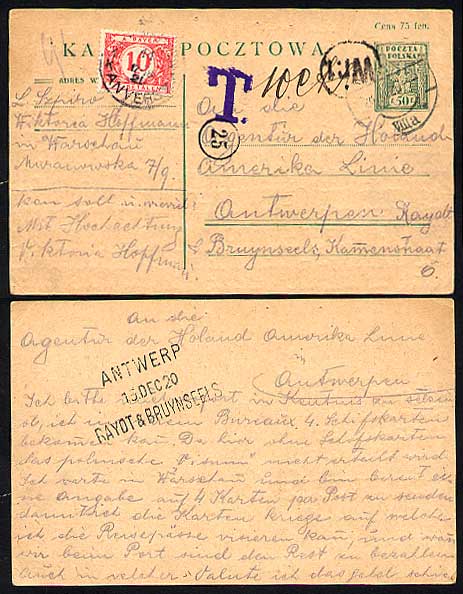 Cena 75 fen.
KA POCZTOWA
POCZTA
POLSKA
50
ADRES W
A PAYER
10
BETALEN
ANVERS
T
10 c
25
L. Szpiro
Wiktoria Hoffmann
in Warschau
Muranowska 7/9
kan soll u.
Mit Hochachtung
Viktoria Hoffman
An die
Agentur der Holand
Amerika Linie
Antwerpen Rayot
& Bruynseels, Kammenstraat
6.
An die
Agentur der Holand Amerika Linie
Antwerpen
ANTWERP
13 DEC 20
RAYOT & BRUYNSEELS
Ich bitte in Kentnis zu setzen
ob, ich in Bureaux 4. Schifskarten
bekomen kan, Da hier ohne Schifskarten
das polnische "Visum" nicht erteilt wird
Ich warte in Warschau und bin bereit ei-
ne Angabe auf 4 Karten per Post zu senden
damit ich die Karten kriege auf welche
ich die Reisepässe visieren kan, und wan
wir beim Port sind den Rest zu bezahlen
auch in welcher Valute ich das geld